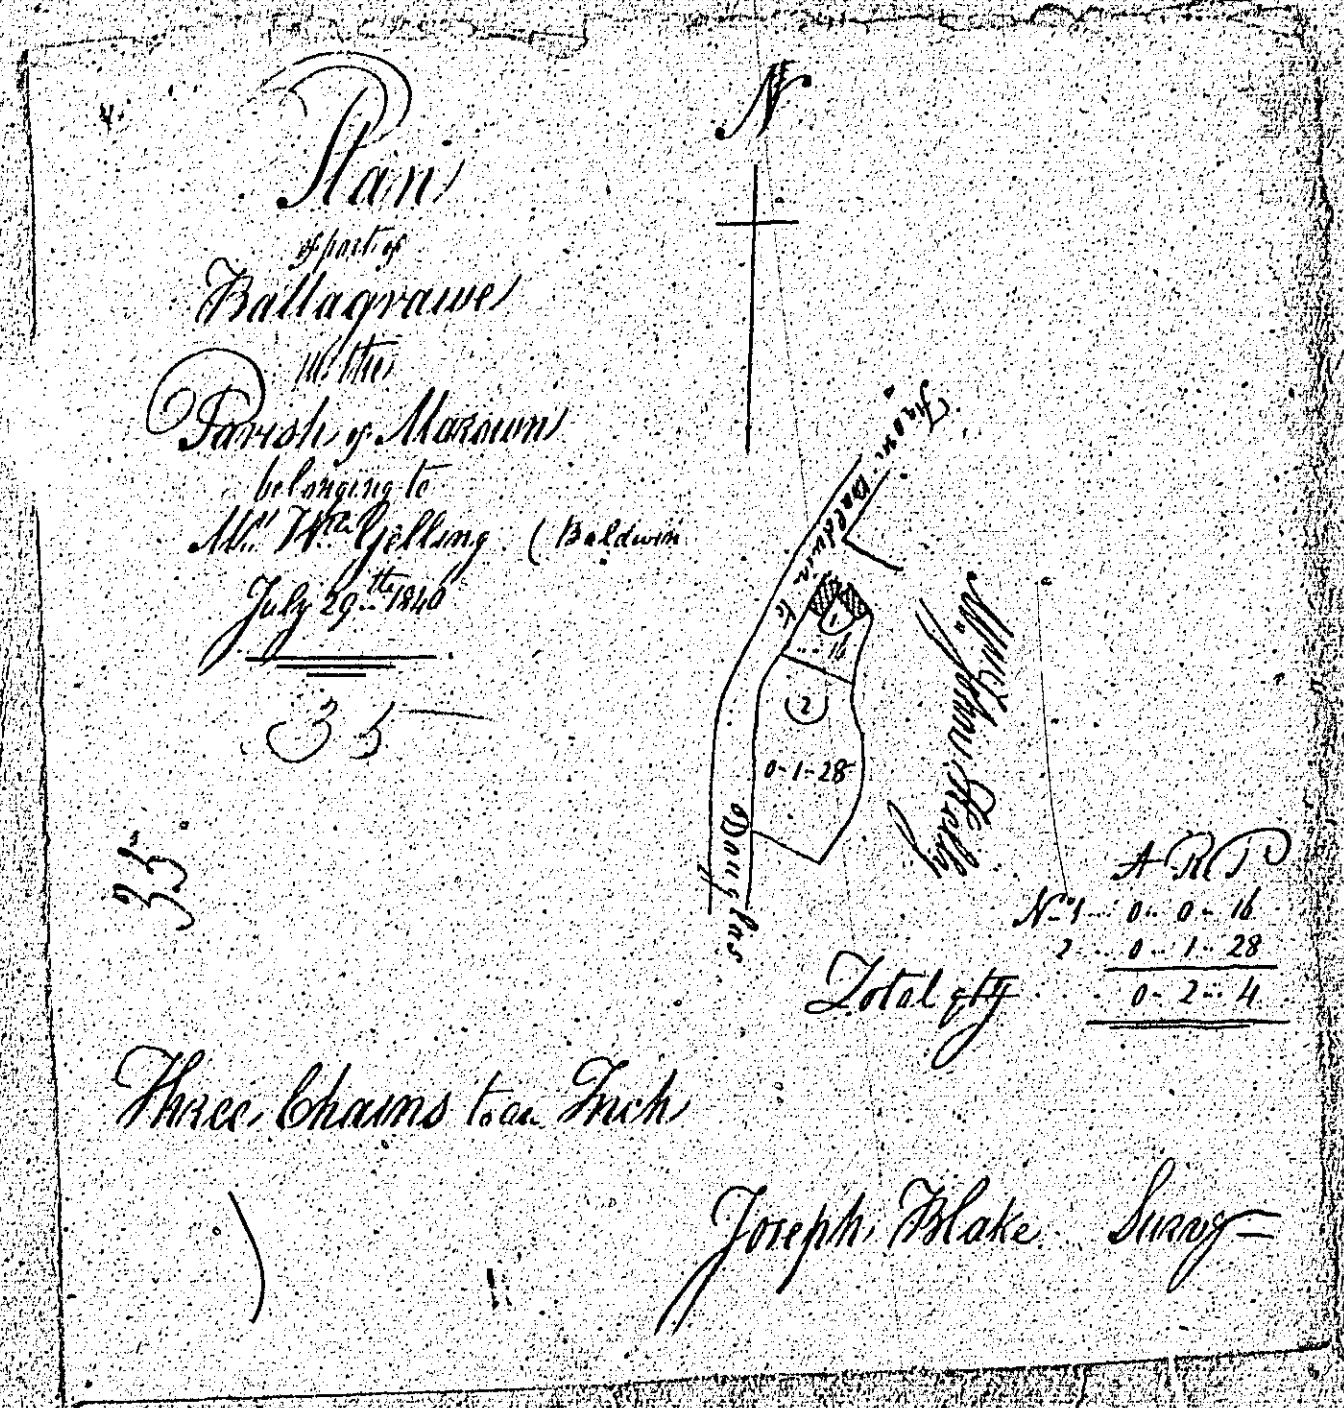 Plan
of part of
Ballagrawe
in the
Parish of Marown
belonging to
Mr. Wm. Gelling ( Baldwin
July 29th 1840
35
35
N
From Baldwin to Douglas
1
16
2
0-1-28
John Kelly
A R P
No. 1 0 .. 0 - 16
2 ... 0 .. 1 .. 28
Total qty 0 - 2 .. 4
Three Chains to an Inch
Joseph Blake Survy